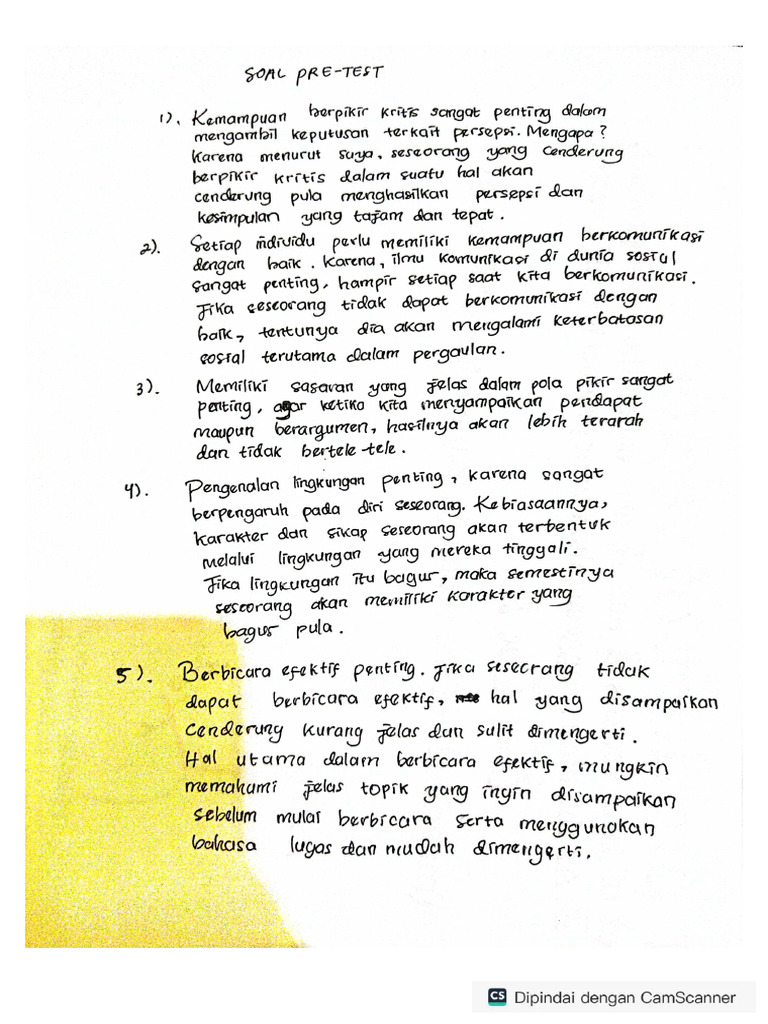 SOAL PRE-TEST
1). Kemampuan berpikir kritis sangat penting dalam
mengambil keputusan terkait persepsi. Mengapa?
Karena menurut saya, seseorang yang cenderung
berpikir kritis dalam suatu hal akan
cenderung pula menghasilkan persepsi dan
kesimpulan yang tajam dan tepat.
2). Setiap individu perlu memiliki kemampuan berkomunikasi
dengan baik. Karena, ilmu komunikasi di dunia sosial
sangat penting, hampir setiap saat kita berkomunikasi.
Jika seseorang tidak dapat berkomunikasi dengan
baik, tentunya dia akan mengalami keterbatasan
sosial terutama dalam pergaulan.
3). Memiliki sasaran yang jelas dalam pola pikir sangat
penting, agar ketika kita menyampaikan pendapat
maupun berargumen, hasilnya akan lebih terarah
dan tidak bertele-tele.
4). Pengenalan lingkungan penting, karena sangat
berpengaruh pada diri seseorang. Kebiasaannya,
karakter dan sikap seseorang akan terbentuk
melalui lingkungan yang mereka tinggali.
Jika lingkungan itu bagus, maka semestinya
seseorang akan memiliki karakter yang
bagus pula.
5). Berbicara efektif penting. Jika seseorang tidak
dapat berbicara efektif, hal yang disampaikan
cenderung kurang jelas dan sulit dimengerti.
Hal utama dalam berbicara efektif, mungkin
memahami jelas topik yang ingin disampaikan
sebelum mulai berbicara serta menggunakan
bahasa lugas dan mudah dimengerti.
CS Dipindai dengan CamScanner